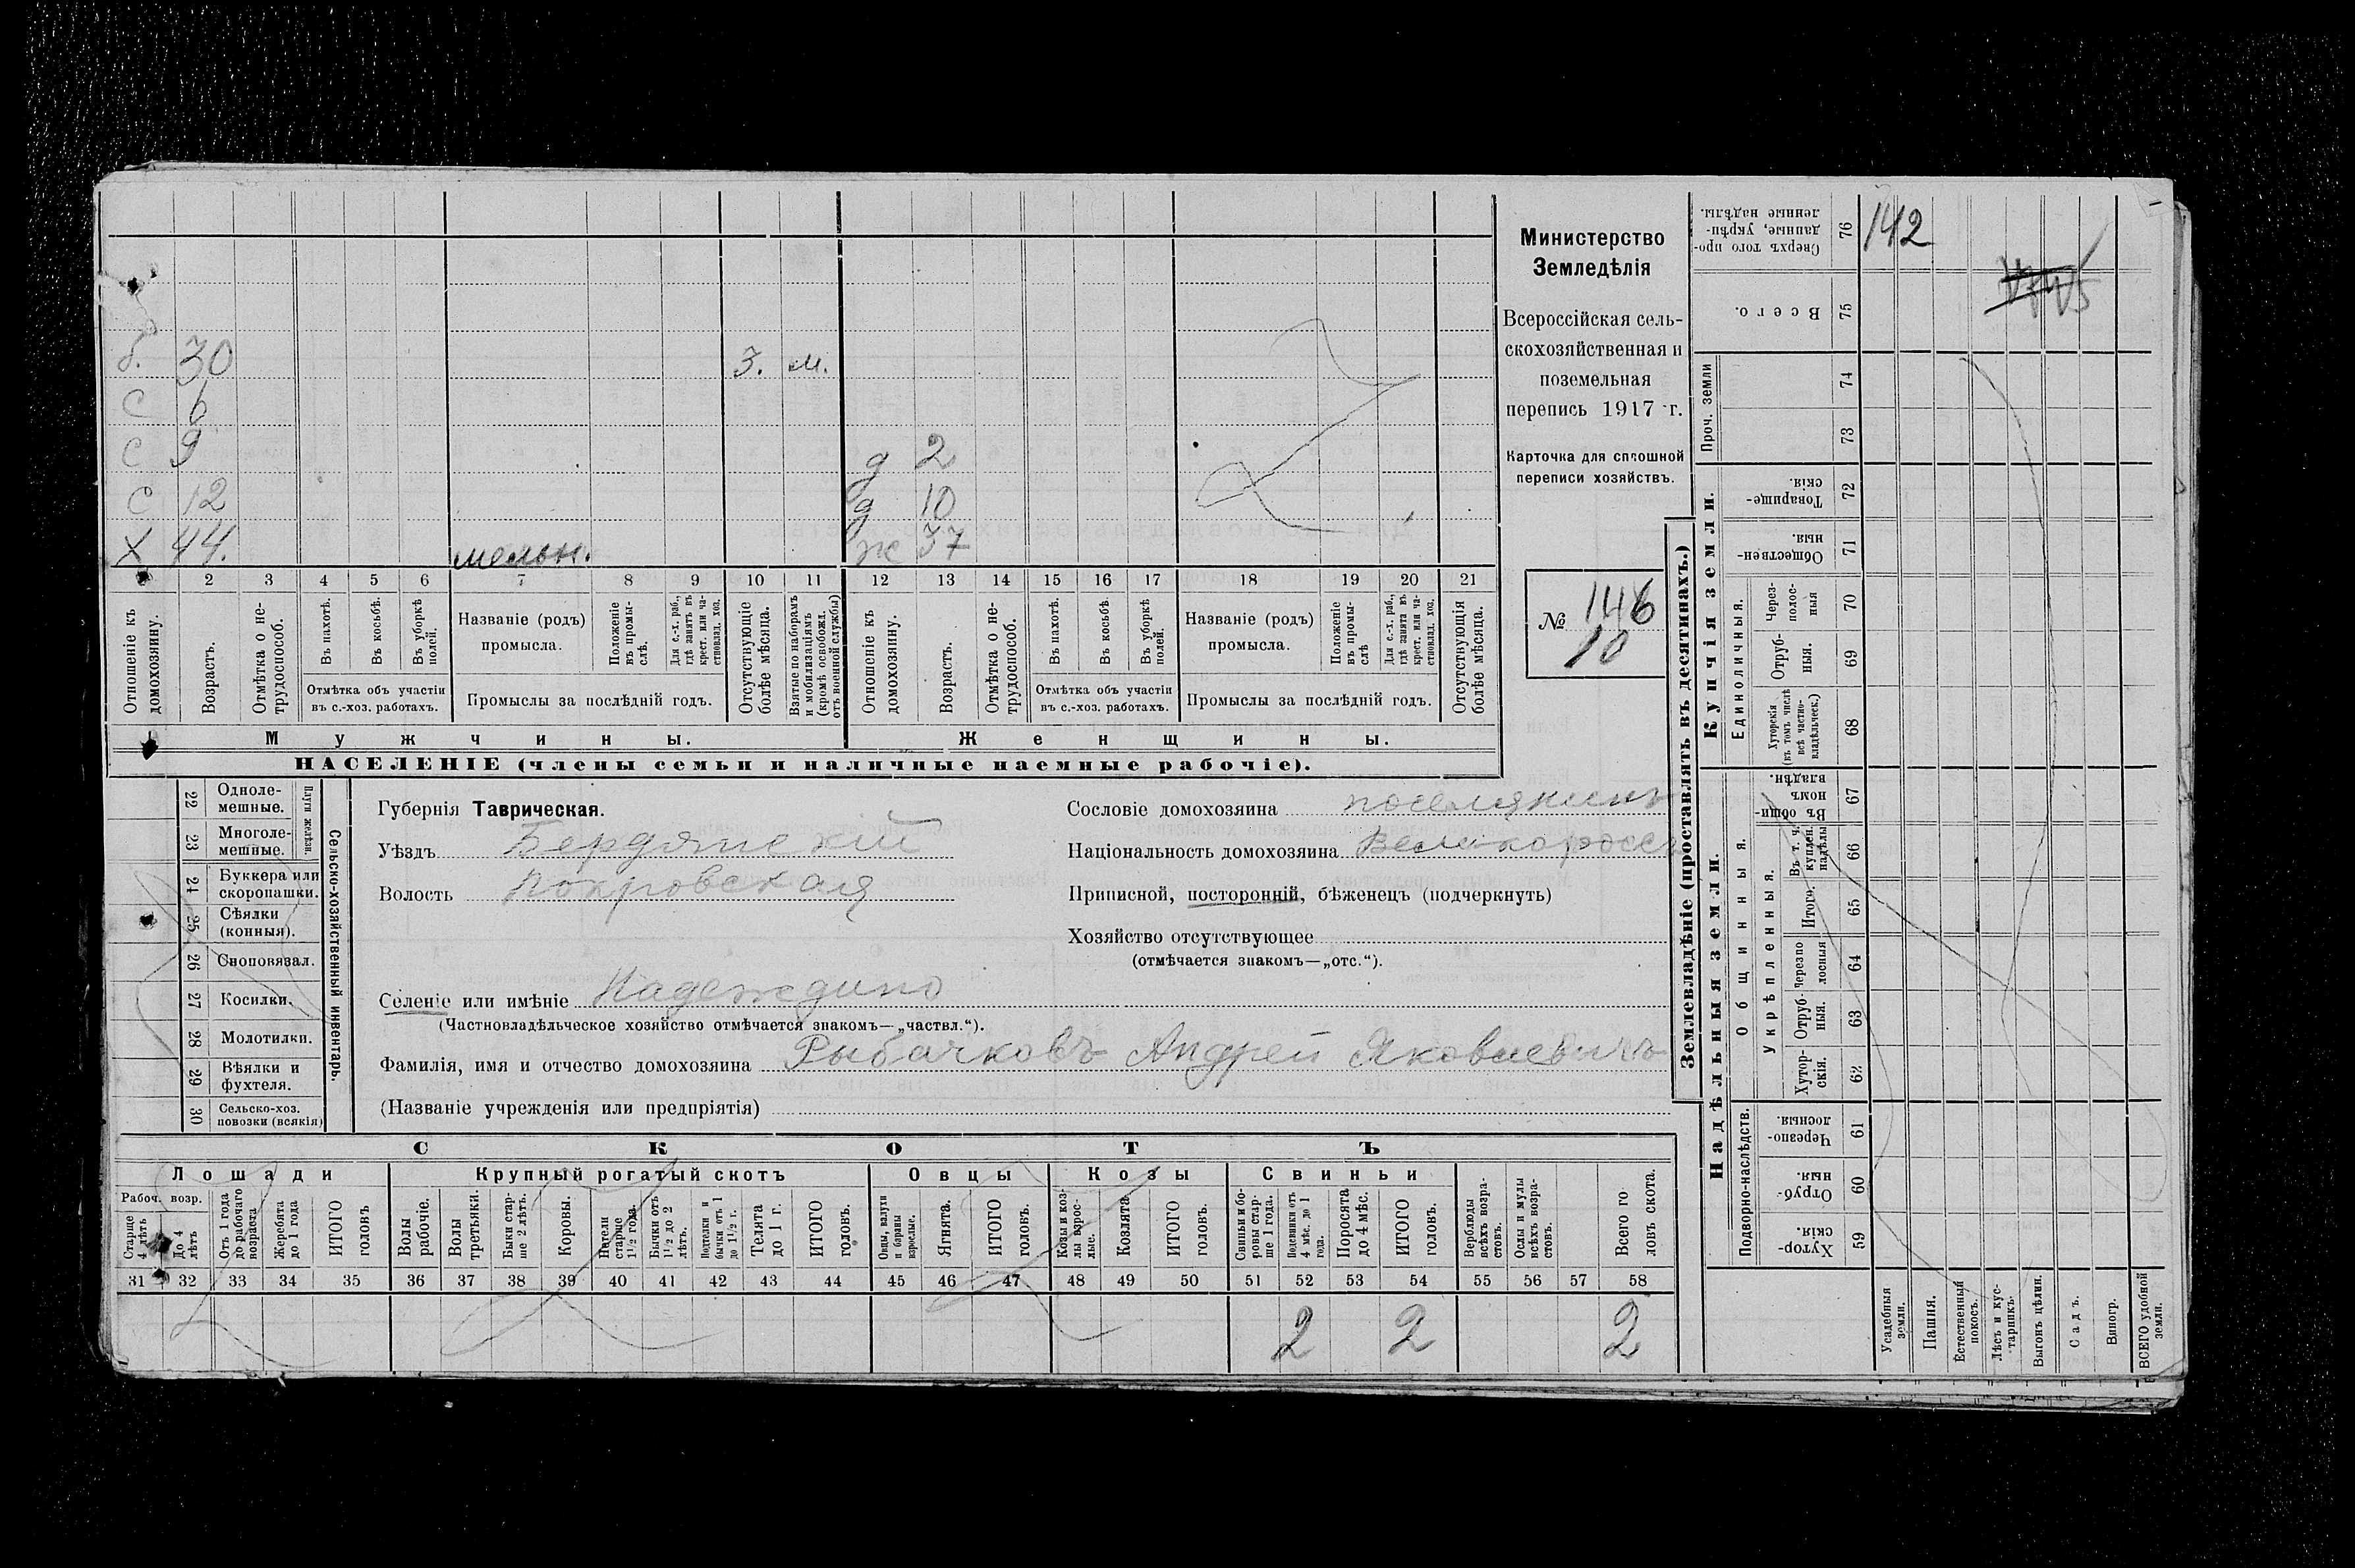 б. 30 3. м.
с 6
с 9 д 2
с 12 д 10
х 44. мельн. ж 37
1 2 3 4 5 6 7 8 9 10 11 12 13 14 15 16 17 18 19 20 21
Отношеніе къ домохозяину.
Возрастъ.
Отмѣтка о не-
трудоспособ.
Въ пахотѣ.
Въ косьбѣ.
Въ уборкѣ полей.
Отмѣтка объ участіи
въ с.-хоз. работахъ.
Названіе (родъ)
промысла.
Положеніе въ промы-
слѣ.
Для с.-х. раб., гдѣ занятъ въ крест. или ча-
стновлад. хоз.
Промыслы за послѣдній годъ.
Отсутствующіе болѣе мѣсяца.
Взятые по наборамъ и мобилизаціямъ (кромѣ освобожд. отъ военной службы)
Отношеніе къ домохозяину.
Возрастъ.
Отмѣтка о не-
трудоспособ.
Въ пахотѣ.
Въ косьбѣ.
Въ уборкѣ полей.
Отмѣтка объ участіи
въ с.-хоз. работахъ.
Названіе (родъ)
промысла.
Положеніе въ промы-
слѣ
Для с.-х. раб., гдѣ занята въ крест. или ча-
стновлад. хоз.
Промыслы за послѣдній годъ.
Отсутствующія болѣе мѣсяца.
Мужчины.
Женщины.
НАСЕЛЕНІЕ (члены семьи и наличные наемные рабочіе).
Министерство
Земледѣлія
Всероссійская сель-
скохозяйственная и
поземельная
перепись 1917 г.
Карточка для сплошной
переписи хозяйствъ.
№ 146
10
22 Одноле-
мешные.
23 Многоле-
мешные.
Плуги желѣзн.
24 Буккера или
скоропашки.
25 Сѣялки
(конныя).
26 Сноповязал.
27 Косилки.
28 Молотилки.
29 Вѣялки и
фухтеля.
30 Сельско-хоз.
повозки (всякія)
Сельско-хозяйственный инвентарь.
Губернія Таврическая.
Уѣздъ Бердянскій
Волость Покровская
Сословіе домохозяина поселянинъ
Національность домохозяина Великороссъ
Приписной, посторонній, бѣженецъ (подчеркнуть)
Хозяйство отсутствующее
(отмѣчается знакомъ—„отс.“).
Селеніе или имѣніе Надеждино
(Частновладѣльческое хозяйство отмѣчается знакомъ—„частвл.“).
Фамилія, имя и отчество домохозяина Рыбачковъ Андрей Яковлевичъ
(Названіе учрежденія или предпріятія)
СКОТЪ
Лошади Крупный рогатый скотъ Овцы Козы Свиньи
Рабоч. возр.
Старше 4 лѣтъ
До 4 лѣтъ
Отъ 1 года до рабочаго возраста
Жеребята до 1 года
ИТОГО головъ
Волы рабочіе.
Волы третьяки.
Быки стар-
ше 2 лѣтъ.
Коровы.
Нетели старше 1½ года.
Бычки отъ 1½ до 2 лѣтъ.
Подтелки и бычки отъ 1 до 1½ г.
Телята до 1 г.
ИТОГО головъ.
Овцы, валухи и бараны взрослые.
Ягнята.
ИТОГО головъ.
Козы и коз-
лы взрос-
лые.
Козлята.
ИТОГО головъ.
Свиньи и бо-
ровы стар-
ше 1 года.
Подсвинки отъ 4 мѣс. до 1 года.
Поросята до 4 мѣс.
ИТОГО головъ.
Верблюды всѣхъ возра-
стовъ.
Ослы и мулы всѣхъ возра-
стовъ.
Всего го
ловъ скота.
31 32 33 34 35 36 37 38 39 40 41 42 43 44 45 46 47 48 49 50 51 52 53 54 55 56 57 58
2 2 2
Землевладѣніе (проставлять въ десятинахъ.)
Купчія земли.
Надѣльныя земли.
Сверхъ того про-
данные, укрѣп-
ленные надѣлы.
76
142
Всего.
75
Проч. земли
74
73
Товарище-
скія.
72
Обществен-
ныя.
71
Единоличныя.
Через-
полос-
ныя
70
Отруб-
ныя.
69
Хуторскія
(въ томъ числѣ
всѣ частно-
владѣльческ.)
68
Общинныя.
Въ общи-
номъ
владѣн.
67
Укрѣпленныя.
Въ т. ч. куплен. надѣлы
66
Итого.
65
Черезпо
лосныя
64
Отруб-
ныя.
63
Хутор-
скія.
62
Подворно-наслѣдств.
Черезпо-
лосныя.
61
Отруб-
ныя.
60
Хутор-
скія.
59
Усадебныя земли.
Пашня.
Естественный покосъ.
Лѣсъ и кус-
тарникъ.
Выгонъ цѣлин.
Садъ.
Виногр.
ВСЕГО удобной земли.